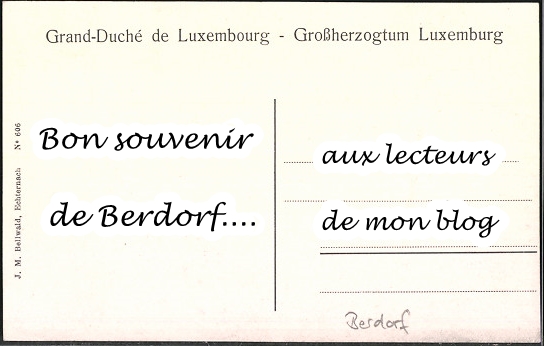 Grand-Duché de Luxembourg - Großherzogtum Luxemburg
J. M. Bellwald, Echternach N° 606
Bon souvenir
de Berdorf....
aux lecteurs
de mon blog
Berdorf